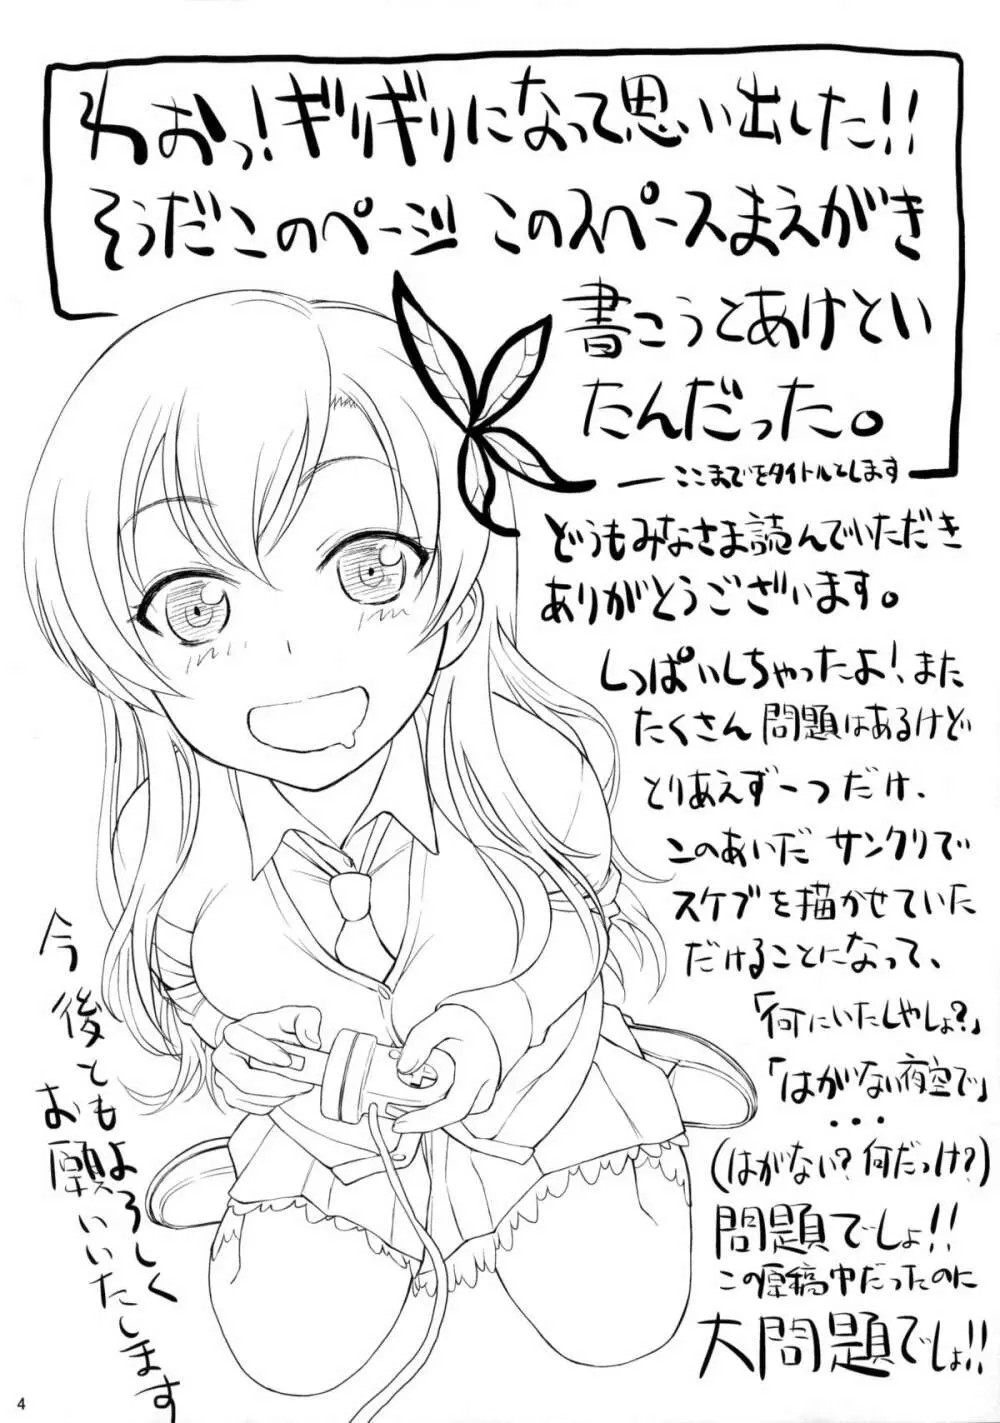 わおっ!ギリギリになって思い出した!!
そうだこのページ このスペースまえがき
書こうとあけとい
たんだった。
―ここまでをタイトルとします
どうもみなさま読んでいただき
ありがとうございます。
しっぱいしちゃったよ!また
たくさん問題はあるけど
とりあえず一つだけ、
このあいだ サンクリで
スケブを描かせていた
だけることになって、
「何にいたしやしょ?」
「はがない夜空で」
・・・
(はがない?何だっけ?)
問題でしょ!!
この原稿中だったのに
大問題でしょ!!
今後ともよろしく
お願いいたします
4